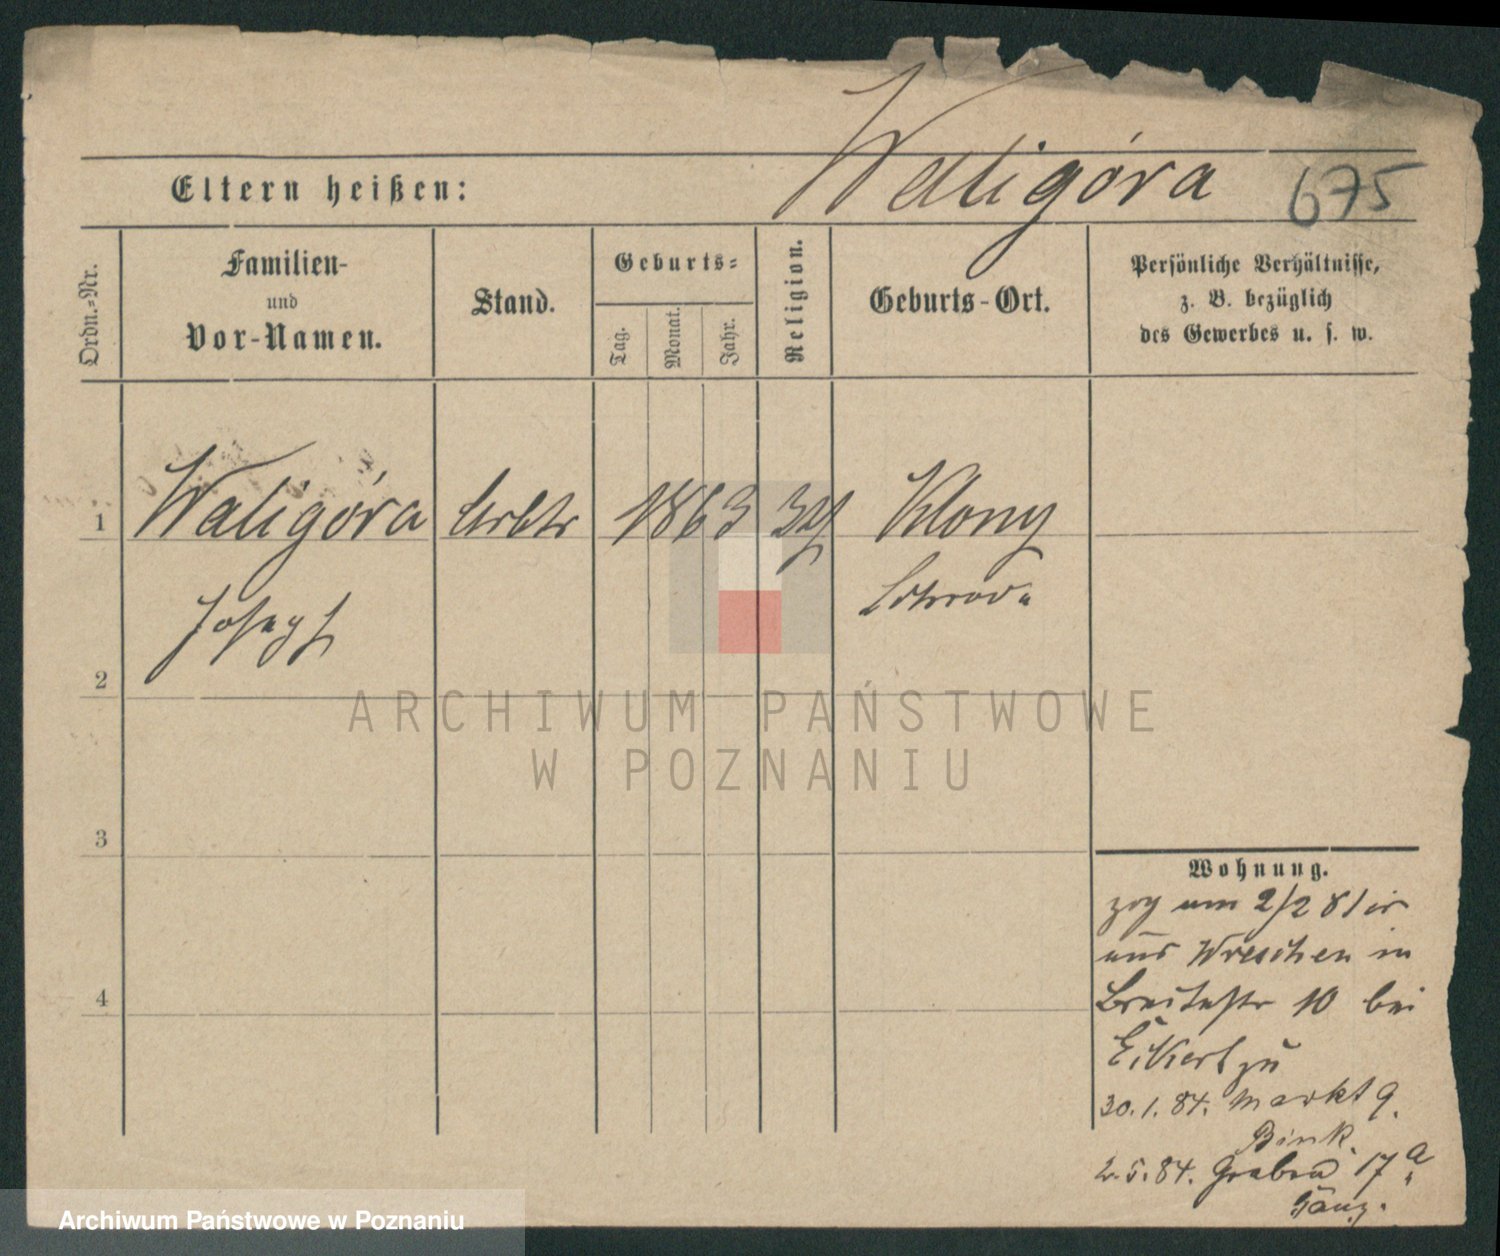 Waligóra
675
Eltern heißen:
Ordn.-Nr.
Familien-
und
Vor-Namen.
Stand.
Geburts-
Tag.
Monat.
Jahr.
Religion.
Geburts-Ort.
Persönliche Verhältnisse,
z. B. bezüglich
des Gewerbes u. s. w.
1 Waligóra Arbtr 1863 Klony
Joseph Schroda
2
ARCHIWUM PAŃSTWOWE
W POZNANIU
3
4
Wohnung.
zog am 2/2 81
aus Wreschen in
Breitestr 10 bei
Eikert zu
30.1.84. Markt 9.
Bink.
2.5.84. Graben 17a
Archiwum Państwowe w Poznaniu